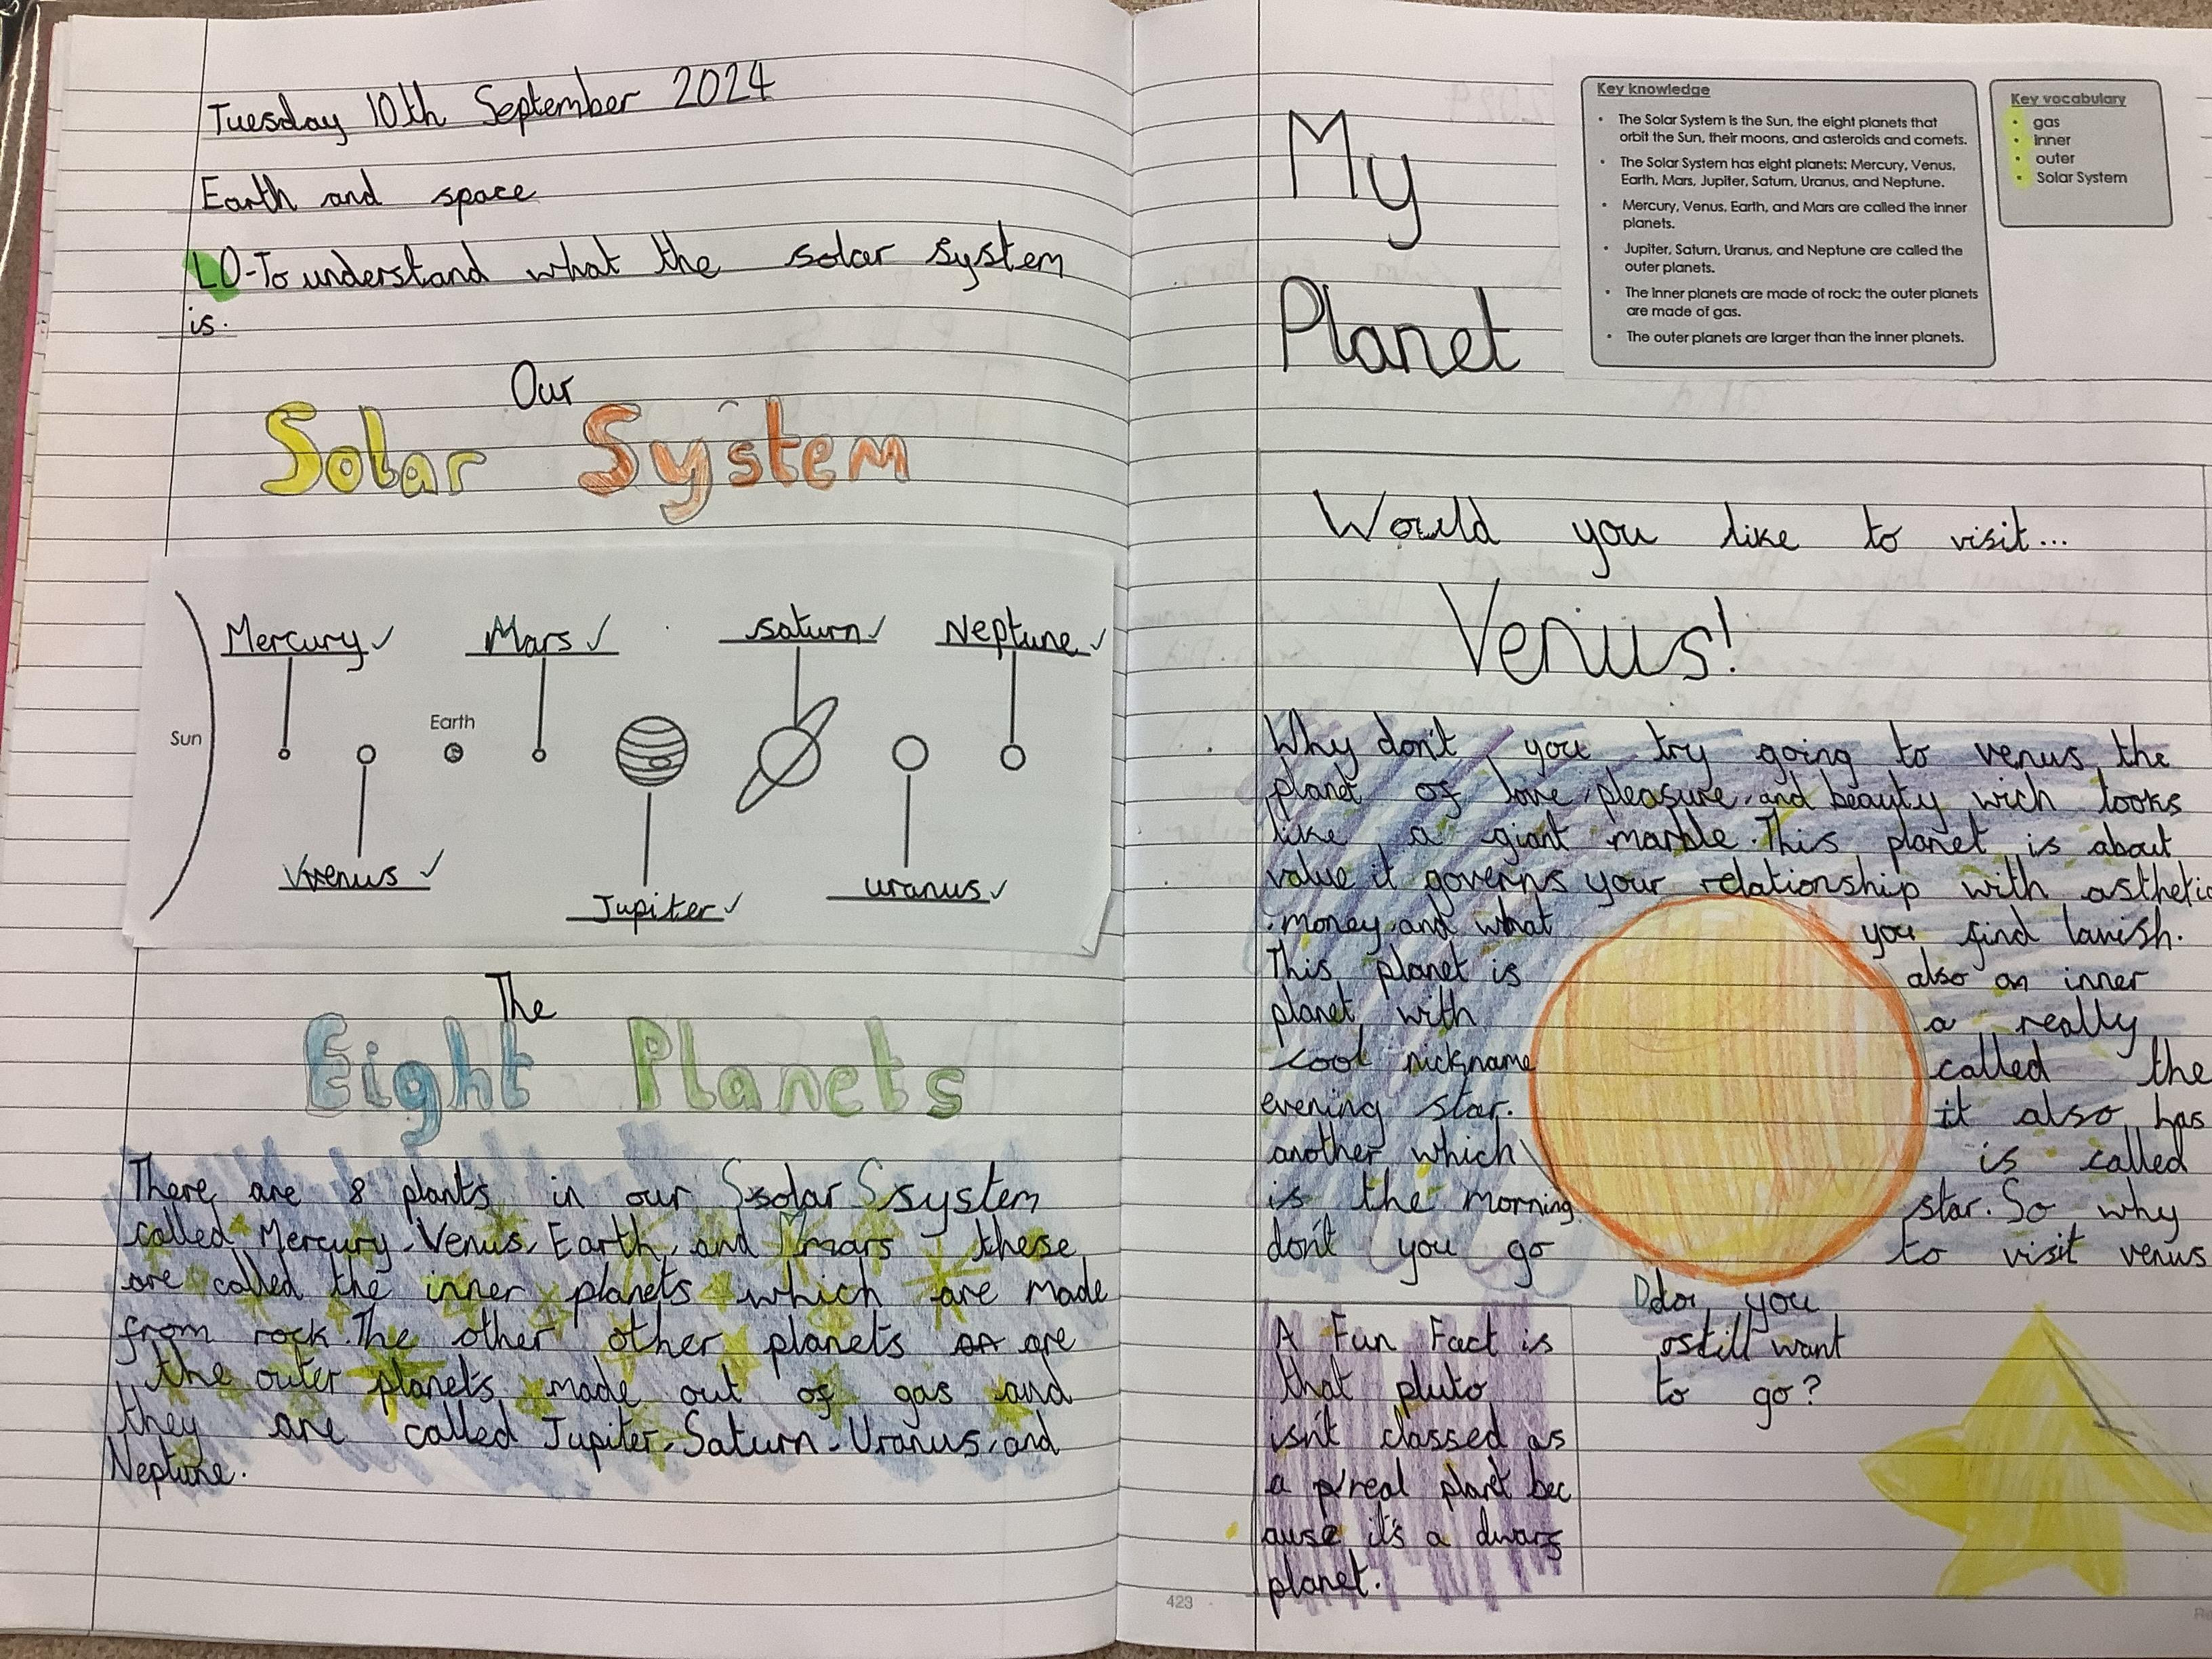 Tuesday 10th September 2024
Earth and space
LO-To understand what the solar system
is.
Our
Solar System
Sun
Mercury
Venus
Earth
Mars
Jupiter
saturn
uranus
Neptune
The
Eight Planets
There are 8 plants in our Ssolar Ssystem
called Mercury, Venus, Earth, and Mmars - these
are called the inner planets which are made
from rock. The other other planets are
the outer planets made out of gas and
they are called Jupiter, Saturn, Uranus, and
Neptune.
My
Planet
Key knowledge
• The Solar System is the Sun, the eight planets that
orbit the Sun, their moons, and asteroids and comets.
• The Solar System has eight planets: Mercury, Venus,
Earth, Mars, Jupiter, Saturn, Uranus, and Neptune.
• Mercury, Venus, Earth, and Mars are called the inner
planets.
• Jupiter, Saturn, Uranus, and Neptune are called the
outer planets.
• The inner planets are made of rock; the outer planets
are made of gas.
• The outer planets are larger than the inner planets.
Key vocabulary
• gas
• inner
• outer
• Solar System
Would you like to visit...
Venus!
Why don't you try going to venus, the
planet of love, pleasure, and beauty wich looks
like a giant marble. This planet is about
value it governs your relationship with asthetic
, money, and what you find lavish.
This planet is also an inner
planet, with a really
cool nickname called the
evening star. it also has
another which is called
is the morning star. So why
don't you go to visit venus
Ddo you
still want
to go?
A Fun Fact is
that pluto
isn't classed as
a real planet bec
ause it's a dwarf
planet.
423